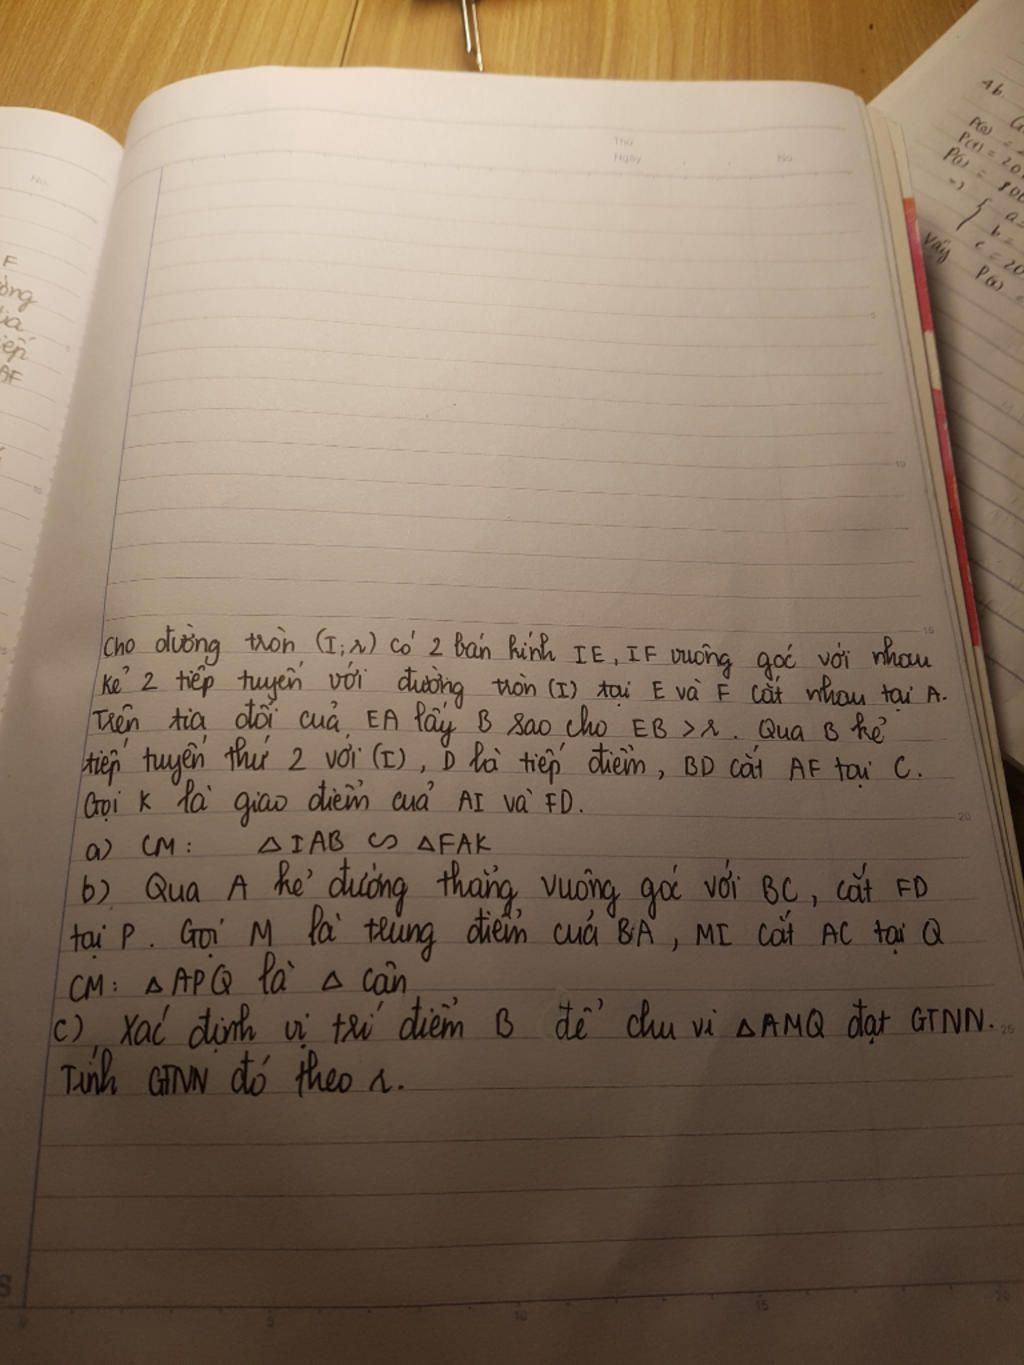 Thứ
Ngày
No.
No.
F
òng
tia
iếp
AF
4b.
P(0) =
P(1) = 20
P( ) = 800
=> { a =
b =
c = 20
Vậy P(x) =
5
10
15
Cho đường tròn (I; r) có 2 bán kính IE, IF vuông góc với nhau
kẻ 2 tiếp tuyến với đường tròn (I) tại E và F cắt nhau tại A.
Trên tia đối của EA lấy B sao cho EB > r. Qua B kẻ
tiếp tuyến thứ 2 với (I), D là tiếp điểm, BD cắt AF tại C.
Gọi K là giao điểm của AI và FD.
20
a) CM: △IAB ∽ △FAK
b) Qua A kẻ đường thẳng vuông góc với BC, cắt FD
tại P. Gọi M là trung điểm của BA, MI cắt AC tại Q
CM: △APQ là △ cân
c), Xác định vị trí điểm B để chu vi △AMQ đạt GTNN.
25
Tính GTNN đó theo r.
S
0
5
10
15
20